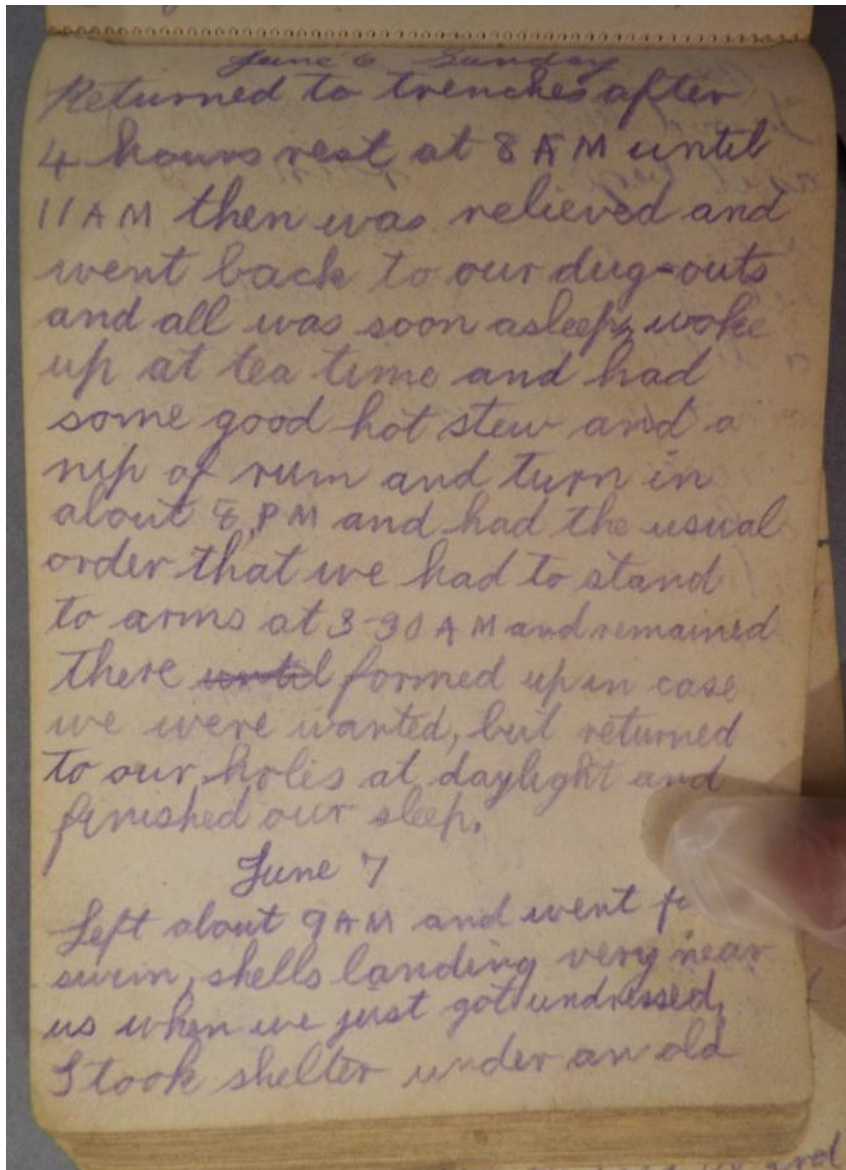 June 6 Sunday
Returned to trenches after
4 hours rest at 8 AM until
11 AM then was relieved and
went back to our dug-outs
and all was soon asleep, woke
up at tea time and had
some good hot stew and a
nip of rum and turn in
about 8, PM and had the usual
order that we had to stand
to arms at 3-30 AM and remained
there until formed up in case
we were wanted, but returned
to our holes at daylight and
finished our sleep.
June 7
Left about 9 AM and went
swim, shells landing very near
us when we just got undressed,
I took shelter under an old